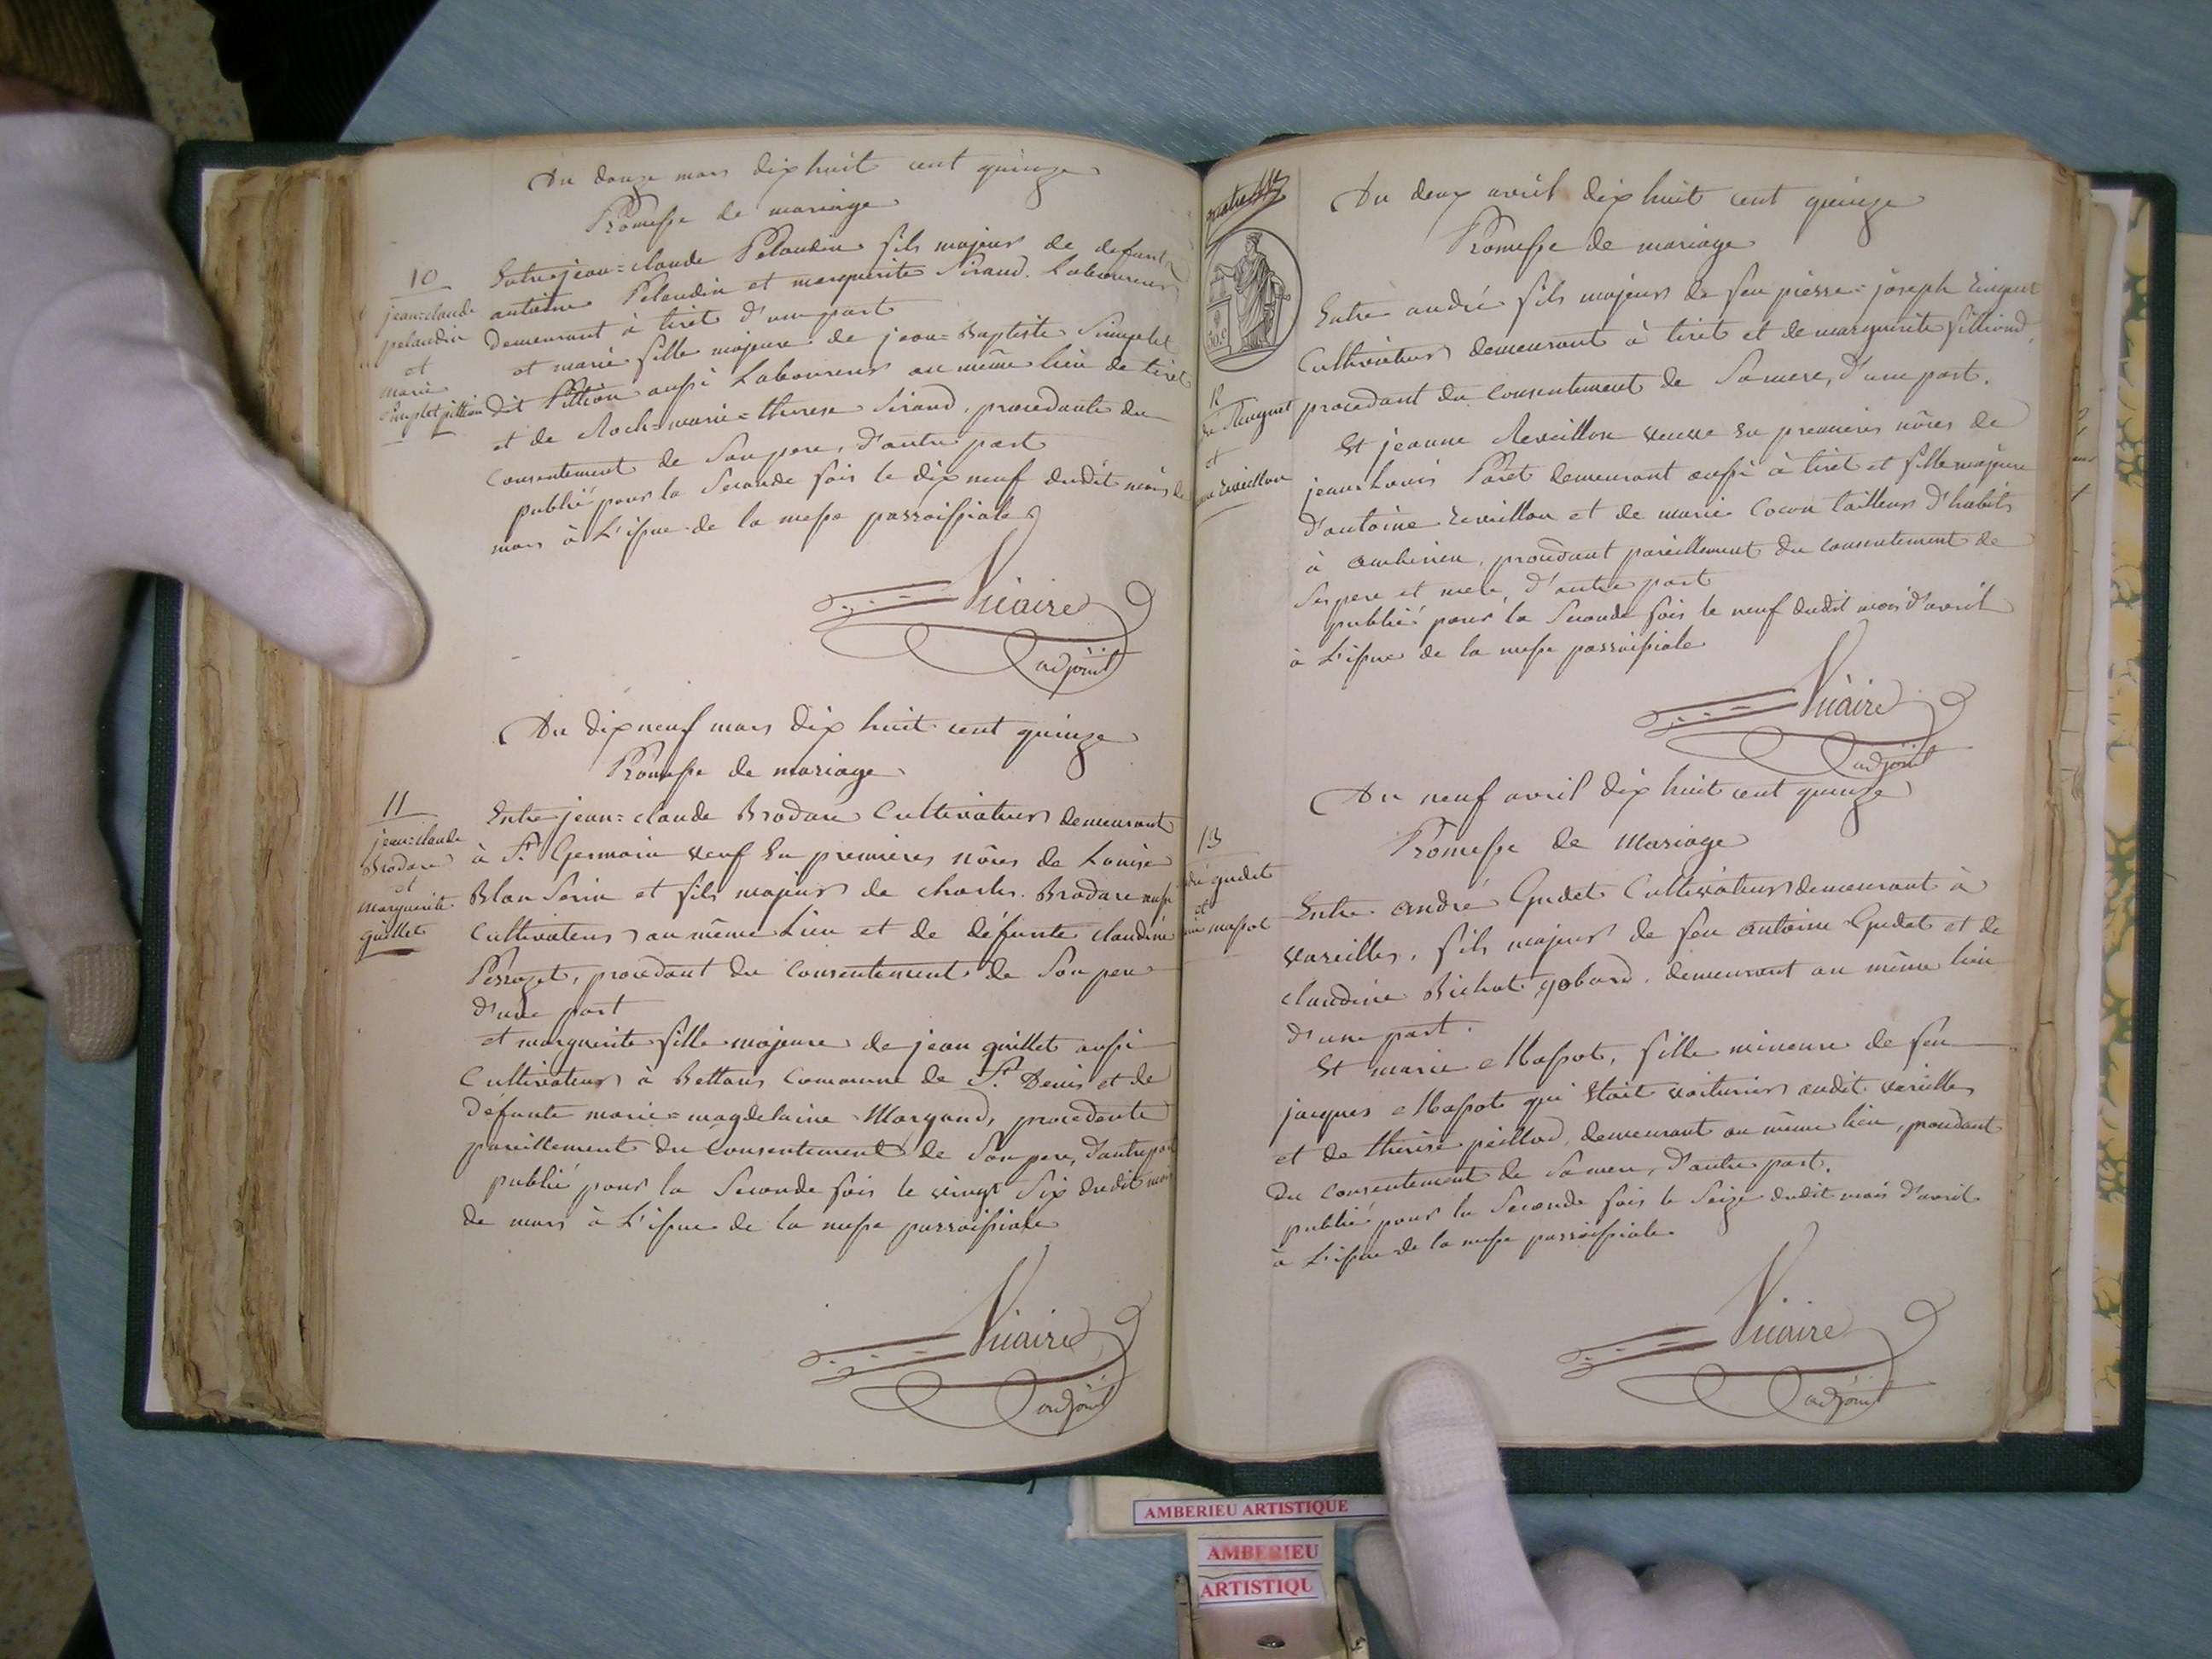 Du douze mars dix huit cent quinze
Promesse de mariage
10
jean=claude
pelaudin
et
marie
simplet pittion
Entre jean=claude Pelaudin fils majeur de defunt
antoine Pelaudin et marguerite Siraud. Laboureur
demeurant à tiret d'une part
et marie fille majeure de jean=Baptiste Simplet
dit Pittion aussi Laboureur au même lieu de tiret
et de Roch=marie=therese Siraud, procedante du
consentement de Son pere, d'autre part
publié pour la Seconde fois le dix neuf dudit mois de
mars à L'issue de la messe parroissiale
Vicaire
adjoint
Du dix neuf mars dix huit cent quinze
Promesse de mariage
11
jean=claude
Brodare
et
marguerite
guillet
Entre jean=claude Brodare Cultivateur demeurant
à St. Germain veuf En premieres nôces de Louise
Blan Serin et fils majeur de charles Brodare aussi
Cultivateur au même Lieu et de défunte claudine
Perrozet, procedant du consentement de Son pere
d'une part
et marguerite fille majeure de jean guillet aussi
Cultivateur à Bettans Commune de St. Denis et de
défunte marie=magdelaine Morgand, procedante
pareillement du Consentement de Son pere, d'autre part
publié pour la Seconde fois le vingt Six dudit mois
de mars à L'issue de la messe parroissiale
Vicaire
adjoint
quatre
30.c
Du deux avril dix huit cent quinze
Promesse de mariage
12
et
Reveillon
Entre andré fils majeur de feu pierre=joseph
Cultivateur demeurant à tiret et de marguerite
procedant du consentement de Sa mere, d'une part.
Et jeanne Reveillon veuve En premieres nôces de
jean Louis Paret demeurant aussi à tiret et fille majeure
d'antoine reveillon et de marie Cocon tailleur d'habits
à ambérieu, procedant pareillement du consentement de
Ses pere et mere, d'autre part
publié pour la Seconde fois le neuf dudit mois d'avril
à L'issue de la messe parroissiale
Vicaire
adjoint
Du neuf avril dix huit cent quinze
Promesse de Mariage
13
gudet
et
massot
Entre andré Gudet Cultivateur demeurant à
vareilles, fils majeur de feu antoine Gudet et de
claudine Bichat gobard, demeurant au même lieu
d'une part.
Et marie Massot, fille mineure de feu
jacques Massot qui Etait voiturier audit vareilles
et de thérèse peillod, demeurant au même lieu, procedant
du consentement de Sa mere, d'autre part.
publié pour la Seconde fois le Seize dudit mois d'avril
à L'issue de la messe parroissiale
Vicaire
adjoint
AMBERIEU ARTISTIQUE
AMBERIEU
ARTISTIQU